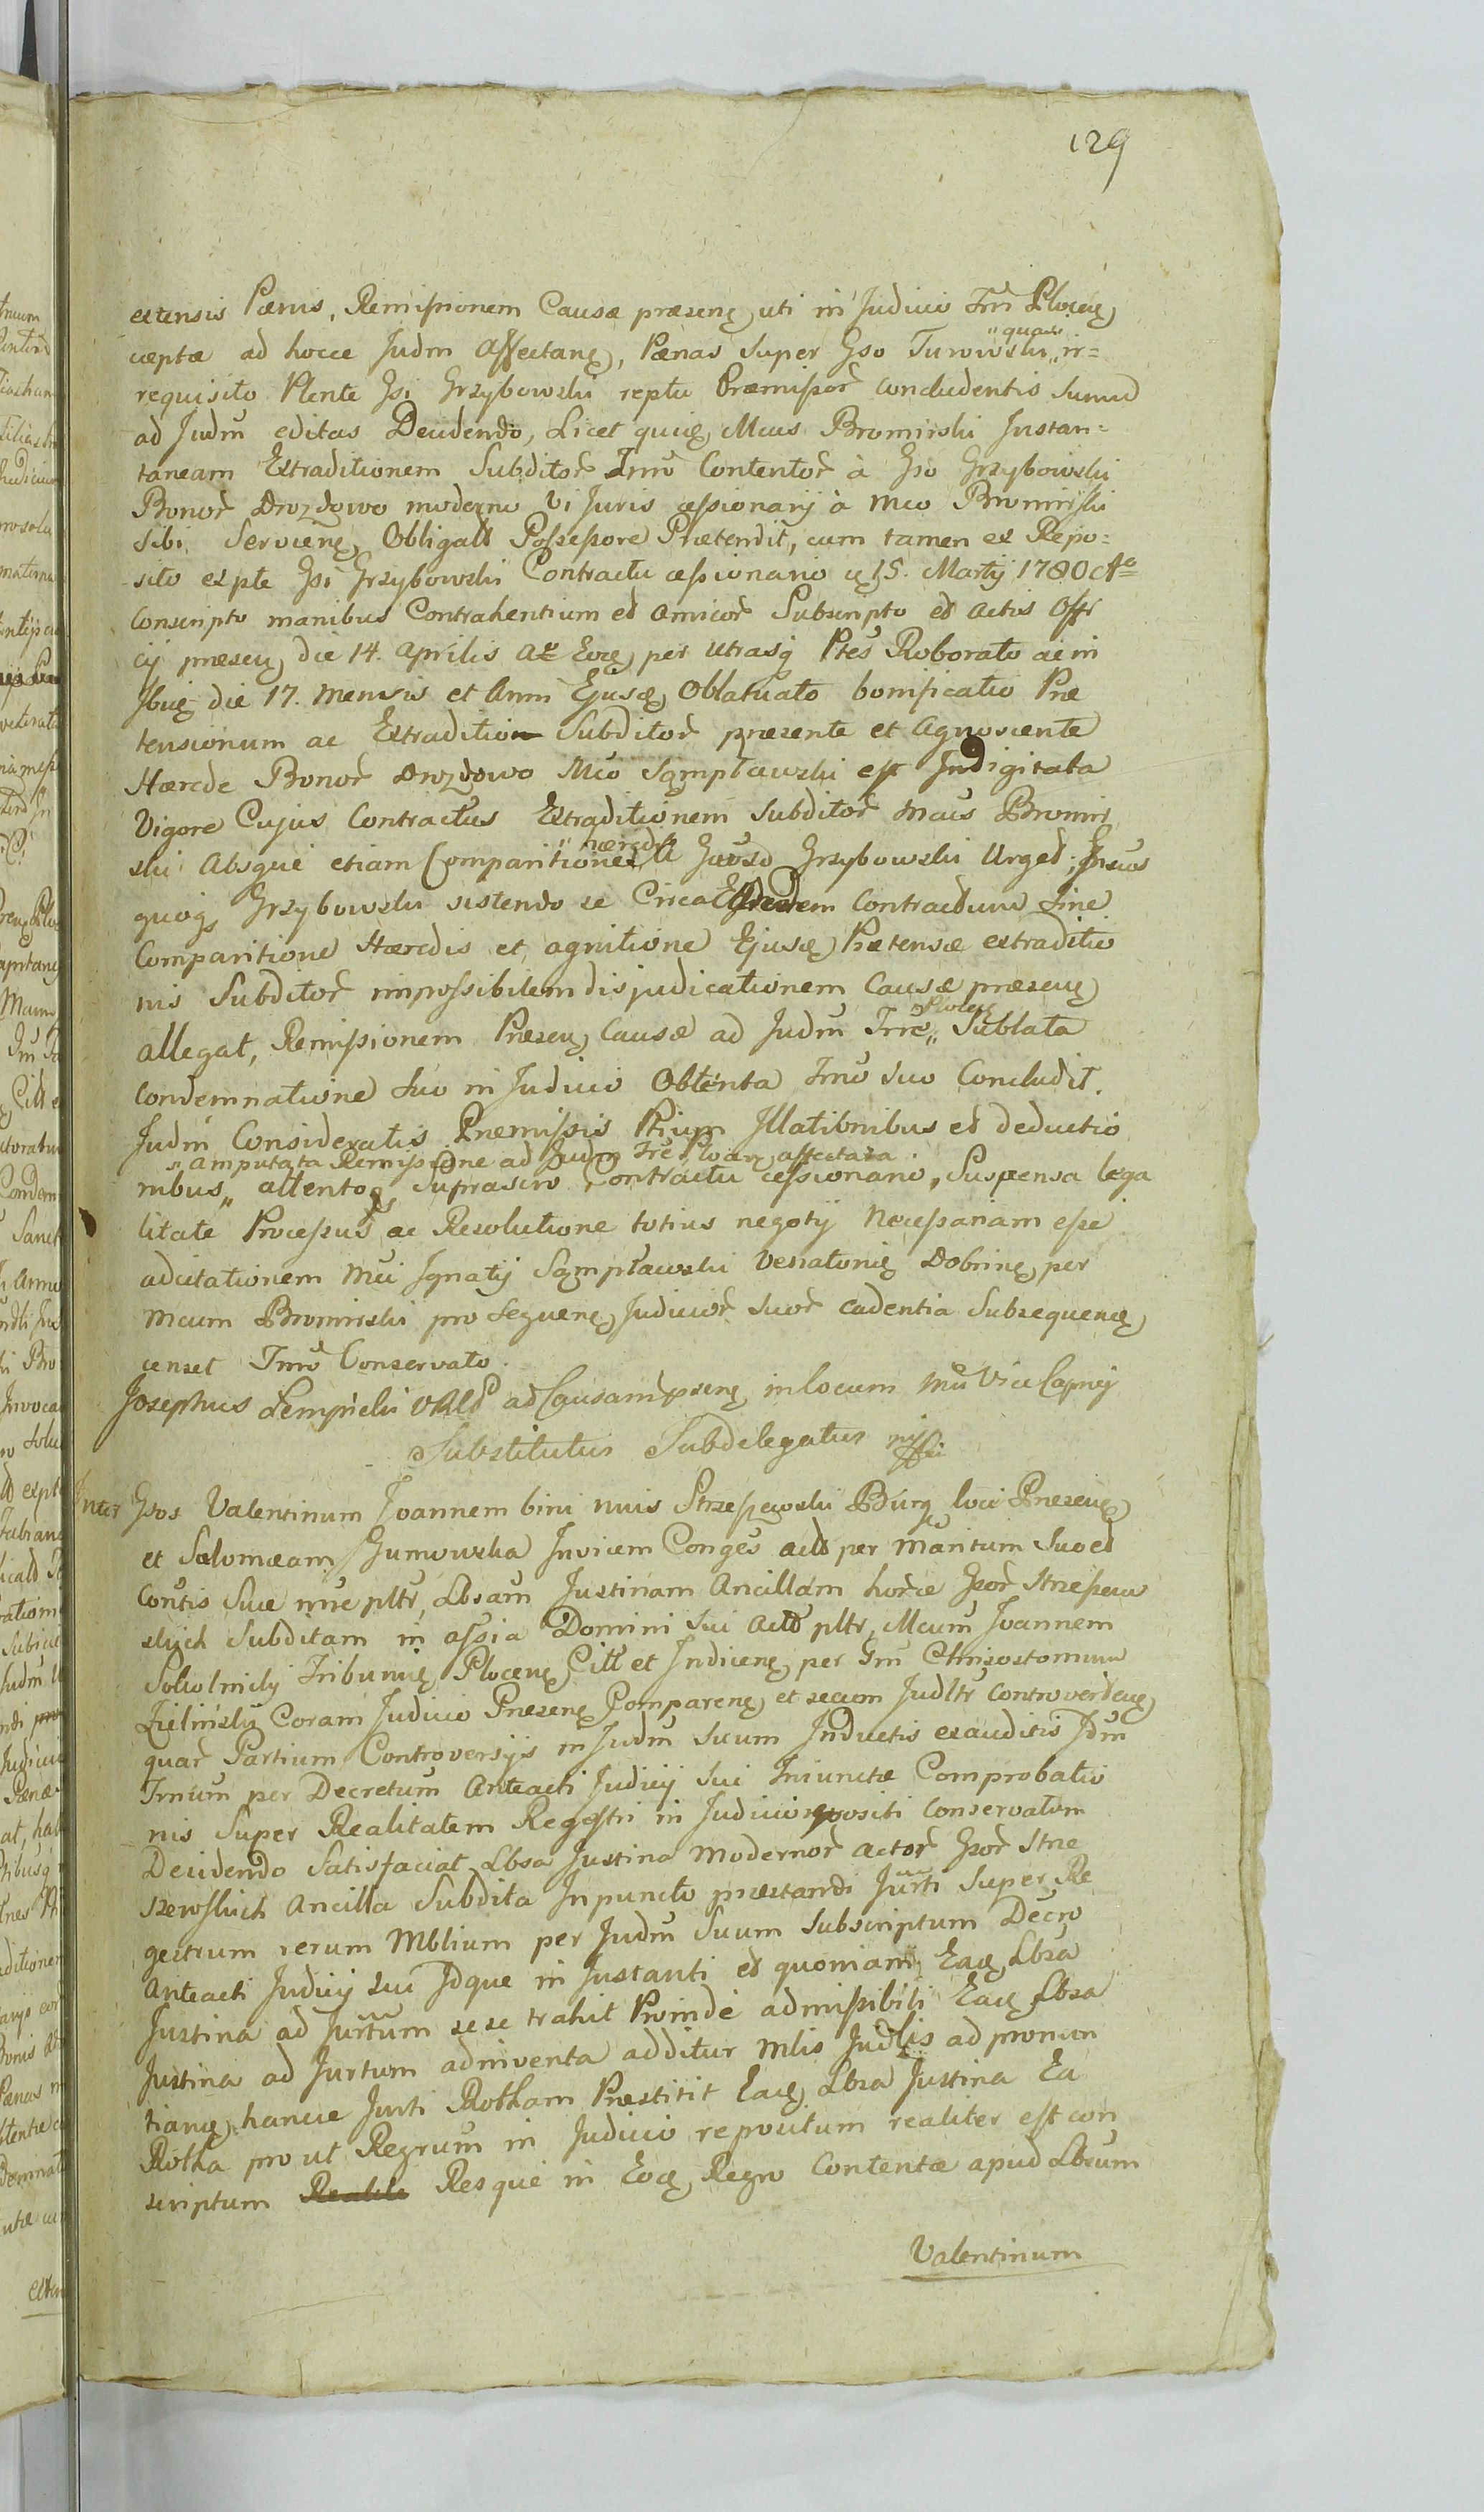 129
extensis Pænis, Remissionem Causæ præsenę uti in Judicio Trri Plocenę
cæptæ ad hocce Judm Affectanę, Pænas Super Gso Turowski „ ir=
„quasi
requisito Plente Gsi Grzybowski reptu Præmissor concludentis Sumud
ad Judm editas Decidendo, Licet quię Mcus Bromirski Instan=
taneam Extraditionem Subditor Trrio Contentor à Gso Grzybowski
Bonor Drozdowo moderno Vi Juris cessionarij à Mco Bromirski
Sibi Servienę Obligatt Possessore Prætendit, cum tamen ex Repo=
sito ex pte Gsi Grzybowski Contractu cessionario ę 15. Martij 1780 Ao
conscripto manibus Contrahentium et Amicor Subscripto et Actis Offi
cij præsenę die 14. Aprilis Ao Eoę per utrasq Ptes Roborato ac in
Ibię die 17. Mensis et Anni Ejusę Oblatuato bonificatio Præ
tensionum ac Extradition Subditor præsente et Agnoscente
Hærede Bonor Drozdowo Mco Sąmpławski est Indigitata
Vigore Cujus Contractus Extraditionem Subditor Mcus Bromir
ski Absque etiam Comparitione „ à Gnoso Grzybowski Urget; Gnsus
„hæredis
quoq Grzybowski sistendo se Circa Eundem Contractum Sine
Comparitione Hæredis et agnitione Ejusę Prætensæ extraditio
nis Subditor impossibilem disjudicationem Causæ præsenę
allegat, Remissionem Præsenę Causæ ad Judm Trre „ Sublata
Plocenę
Condemnatione Suo in Judicio Obtenta Trno suo Concludit.
Judm Consideratis Præmissis Ptium Illationibus et deductio
„amputata Remissione ad Judm Trre Plocenę affectata
nibus „ attentoq Suprascro Contractu cessionario, Suspensa lega
litate Processus ac Resolutione totius negotij Necessariam esse
adcitationem Mci Ignatij Sąmpławski Venatorię Dobrinę per
Mcum Bromirski pro Sequenę Judicior Suor cadentia Subsequenę
censet Trno Conservato.
Josephus Lempicki ad Causam præsenę in locum Mci Vice Capnei
Substitutus Subdelegatus
Inter Gsos Valentinum Joannem bini nuis Strzeszewski Burg loci Præsenę
et Salomeam Gumowska Invicem Conges actt per Maritum Suo et
Contis Suæ nne pltr, Lbsam Justinam Ancillam horce Gsor Strzeszew
skich Subditam in assia Domini Sui Actt pltr, Mcum Joannem
Sokolnicki Tribunię Plocenę Citt et Indicenę per Gm Chrisostomum
Zielinski Coram Judicio Præsenę Comparenę et secum Judltr controvertenę
quar Partium Controversijs in Judm Suum Inductis exauditis Jdm
Trnum per Decretum Anteacti Judicij Sui Iniunctæ Comprobatio
nis Super Realitatem Regestri in Judicio repositi Conservatum
Decidendo Satisfaciat Lbsa Justina Modernor Actor Gsor Strze
szewskich Ancilla Subdita In puncto præstandi Jurti Super Re
gestrum rerum Mblium per Judm Suum Subscriptum Decro
Anteacti Judicij sui Idque in Instanti et quoniam Eaę Lbsa
Justina ad Jurtum sese trahit Proinde admissibili Eaę Lbsa
Justina ad Jurtum adinventa additur Mlis Judlis ad pronun
tianę hancce Jurti Rotham Præstitit Eaę Lbsa Justina Ea
Rotha pro ut Regrum in Judicio repositum realiter est con
scriptum Resque in Eoę Regro Contentæ apud Lbsum
Valentinum